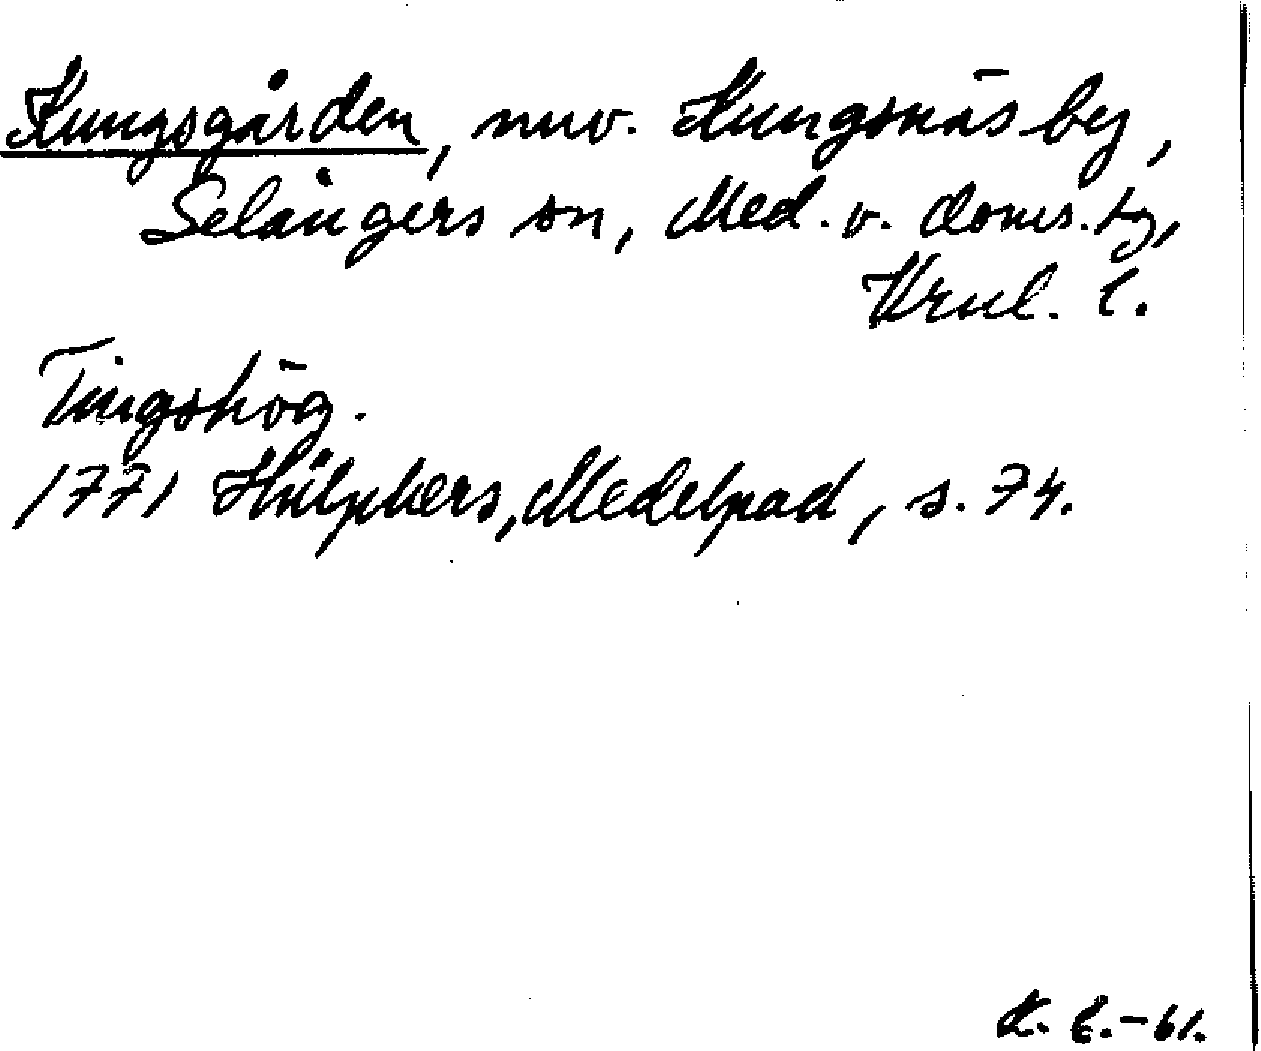 Kungsgården, nuv. Kungsnäs by,
Selångers sn, Med. v. doms. tg,
Vrnl. l.
Tingshög.
1771 Hülphers, Medelpad, s. 74.
K. E. - 61.